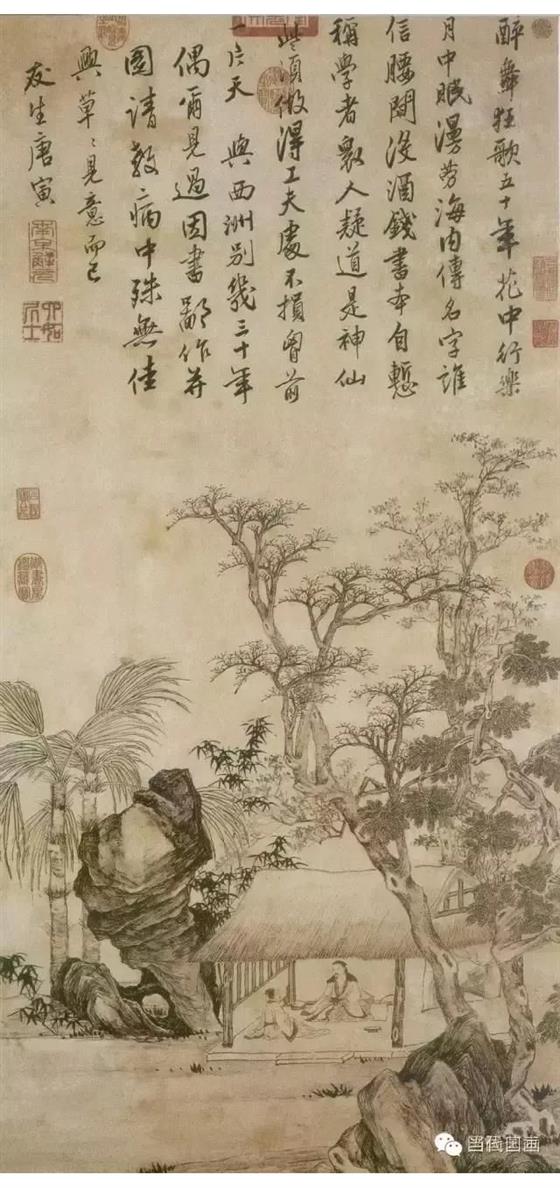 醉舞狂歌五十年花中行樂
月中眠漫勞海内傳名字誰
信腰間没酒錢書本自慙
稱學者衆人疑道是神仙
些須做得工夫處不損胷前
一片天 與西洲別幾三十年
偶爾見過因書鄙作并
圖請教病中殊無佳
興草〻見意而已
友生唐寅
南京解元
六如居士
当代国画